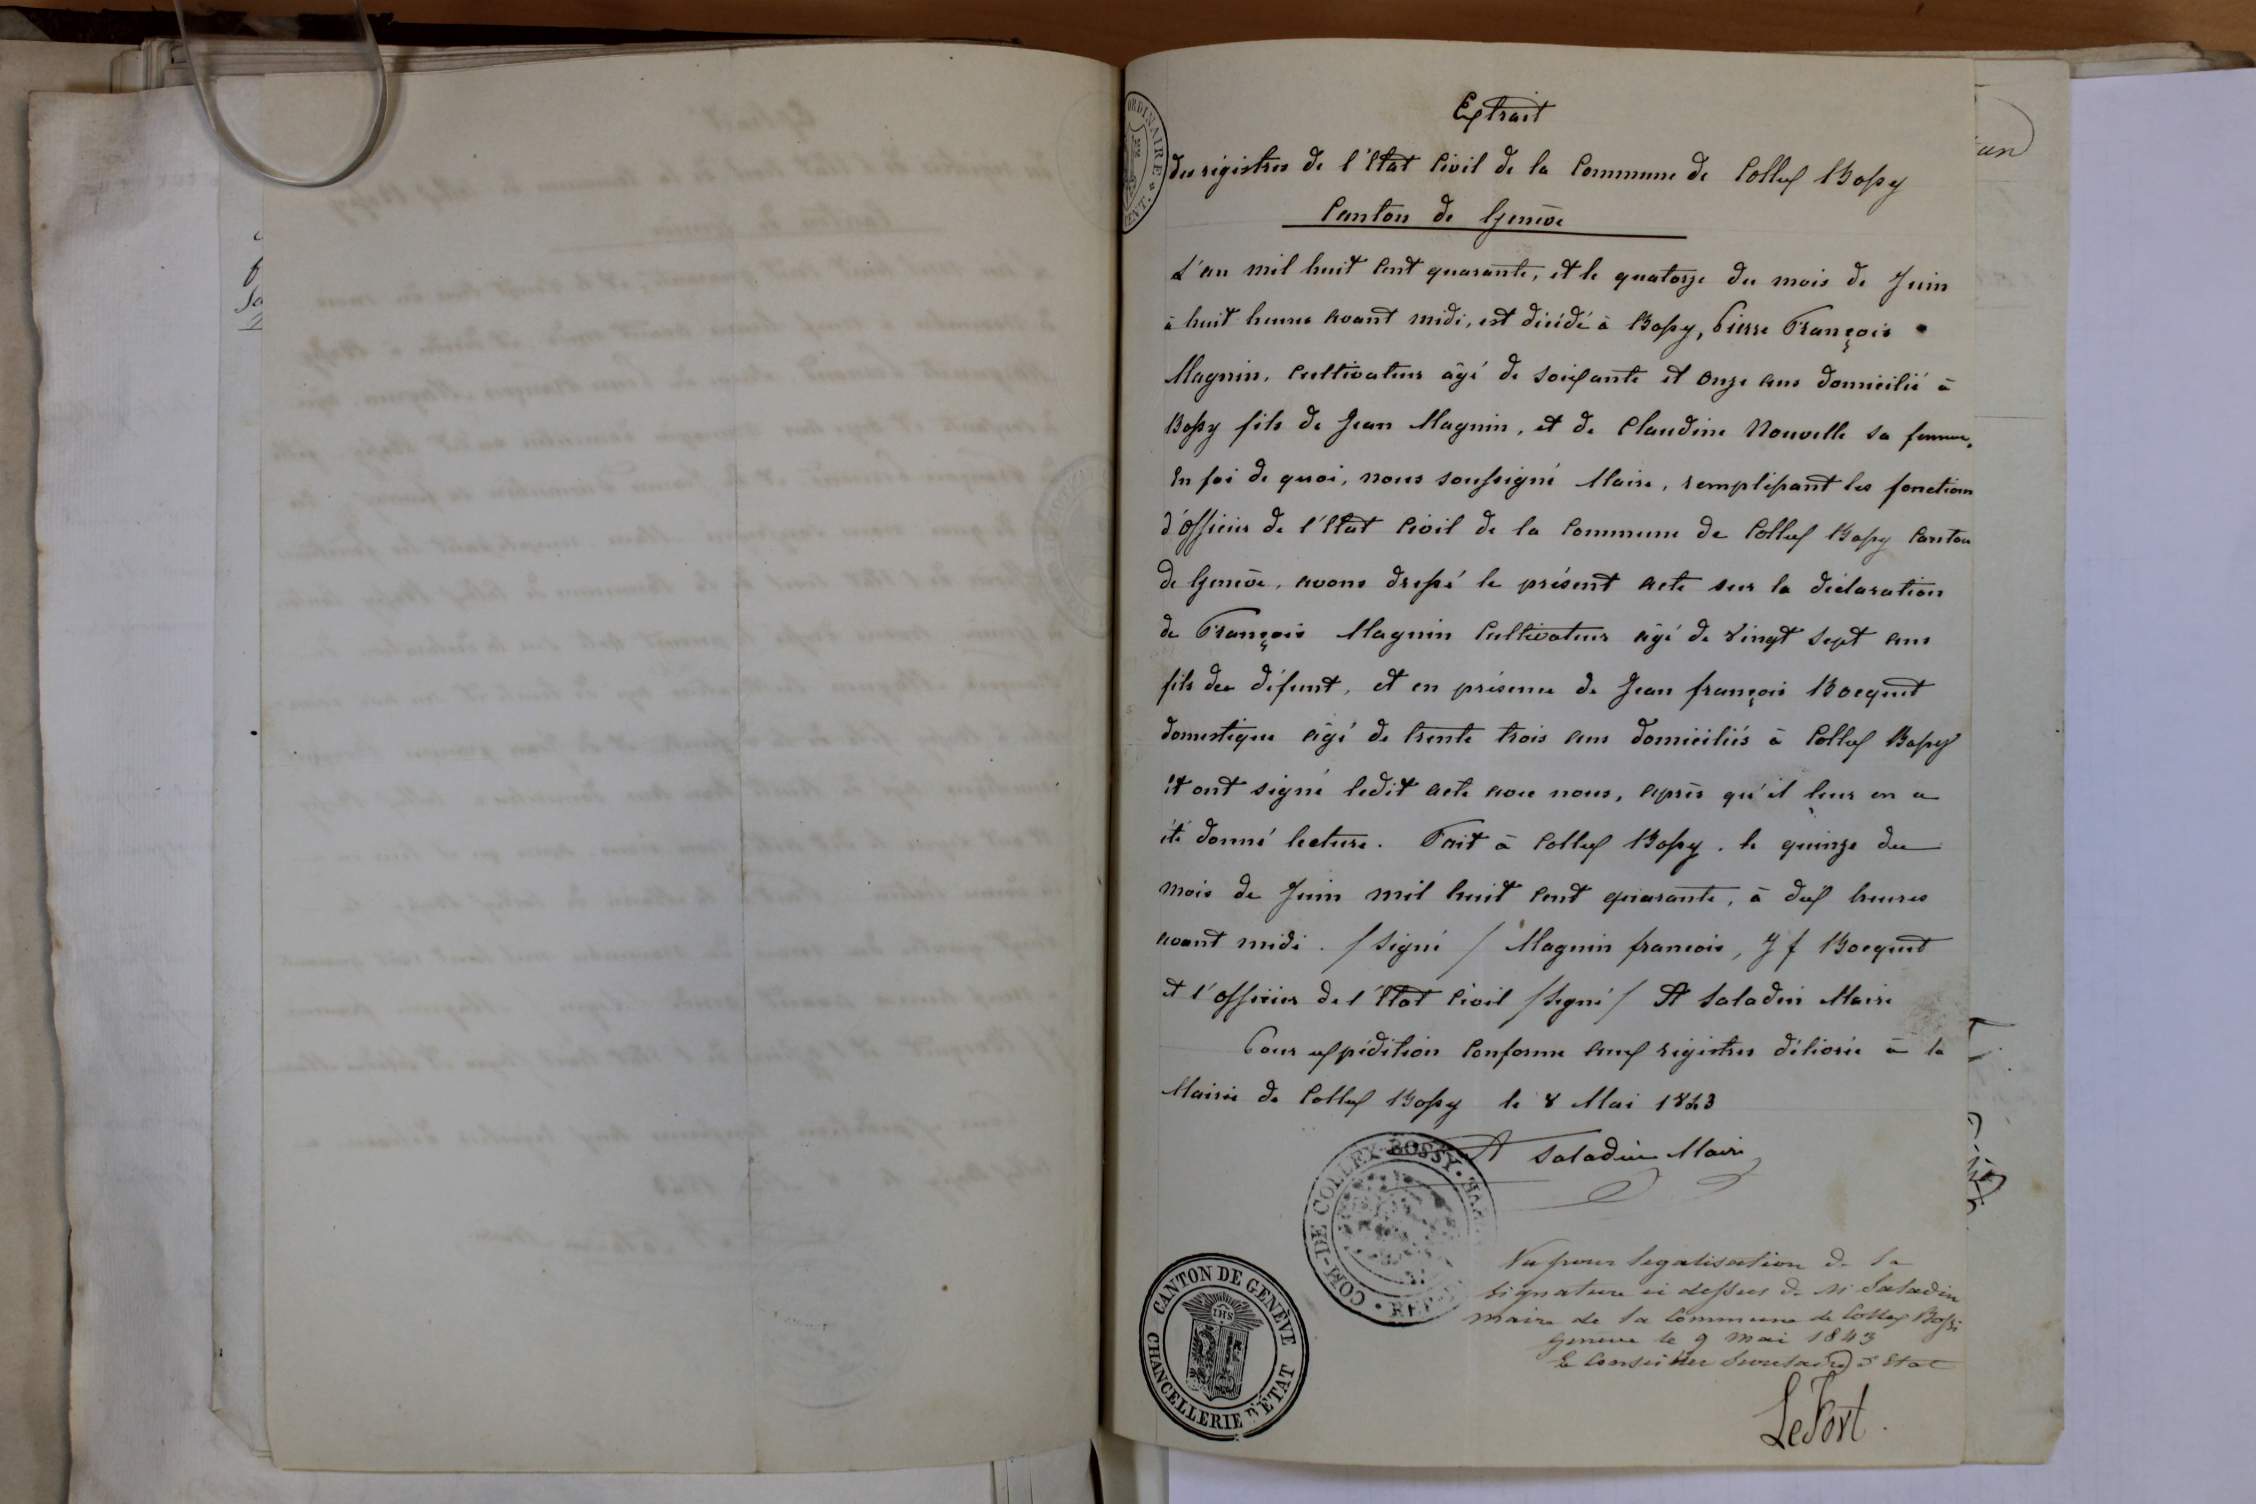 Extrait
des régistres de l'Etat Civil de la Commune de Collex Bossy
Canton de Genève
L'an mil huit cent quarante, et le quatorze du mois de Juin
à huit heures avant midi, est décédé à Bossy, Pierre François
Magnin, Cultivateur âgé de soixante et onze ans domicilié à
Bossy fils de Jean Magnin, et de Claudine Nouvelle sa femme.
En foi de quoi, nous soussigné Maire, remplissant les fonctions
d'Officier de l'Etat Civil de la Commune de Collex Bossy Canton
de Genève, avons dressé le présent acte sur la déclaration
de François Magnin Cultivateur âgé de vingt sept ans
fils du défunt, et en présence de Jean françois Bocquet
domestique âgé de trente trois ans domiciliés à Collex Bossy
Et ont signé ledit acte avec nous, après qu'il leur en a
été donné lecture. Fait à Collex Bossy. le quinze du
mois de Juin mil huit cent quarante, à dix heures
avant midi. / Signé / Magnin francois, J f Bocquet
et l'officier de l'Etat Civil / Signé / A Saladin Maire
Pour expédition Conforme aux régistres délivrée à la
Mairie de Collex Bossy le 8 Mai 1843
A Saladin Maire
COM-DE COLLEX-BOSSY
Vu pour legalisation de la
signature ci dessus de M Saladin
maire de la Commune de Collex Bossi
Genève le 9 mai 1843
Le Conseiller Secretaire d'Etat
LeFort.
CANTON DE GENÈVE
IHS
CHANCELLERIE D'ÉTAT
ORDINAIRE
CENT.